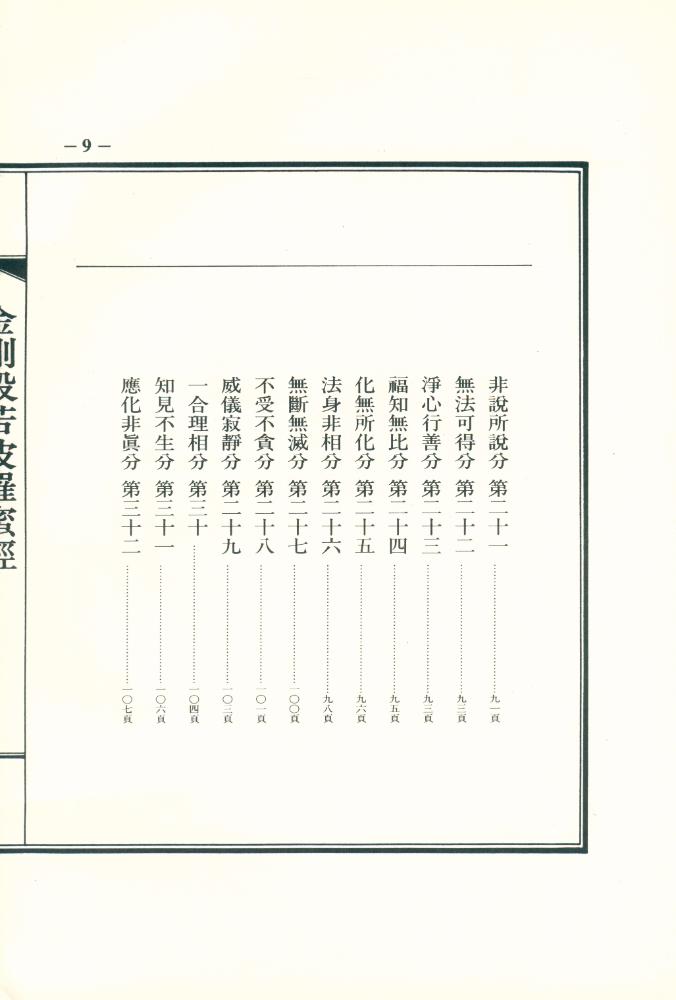 －9－
非說所說分 第二十一……………………九一頁
無法可得分 第二十二……………………九三頁
淨心行善分 第二十三……………………九三頁
福知無比分 第二十四……………………九五頁
化無所化分 第二十五……………………九六頁
法身非相分 第二十六……………………九八頁
無斷無滅分 第二十七……………………一〇〇頁
不受不貪分 第二十八……………………一〇一頁
威儀寂靜分 第二十九……………………一〇三頁
一合理相分 第三十………………………一〇四頁
知見不生分 第三十一……………………一〇六頁
應化非眞分 第三十二……………………一〇七頁
金剛般若波羅蜜經